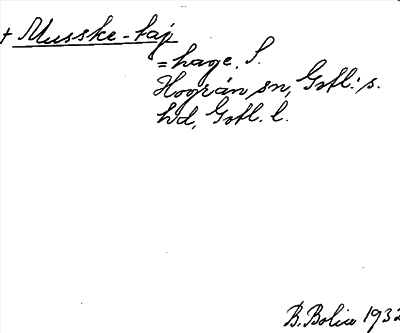 + Musske-täj
= hage. S.
Hogrän sn, Gotl: s.
hd, Gotl. l.
B. Bolin 1932